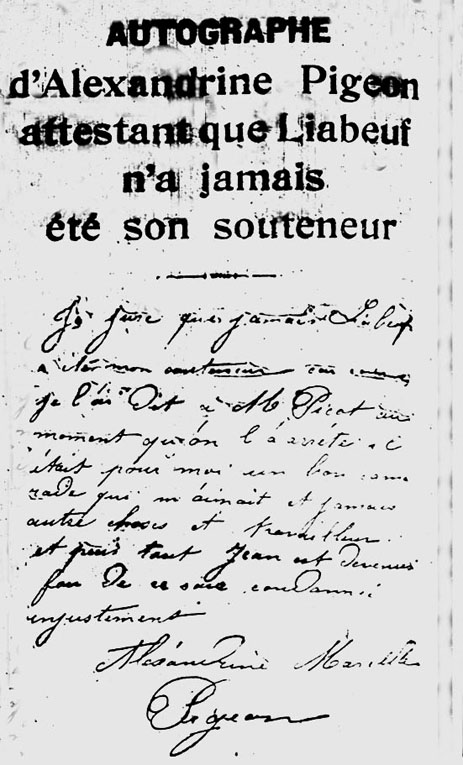 AUTOGRAPHE
d'Alexandrine Pigeon
attestant que Liabeuf
n'a jamais
été son souteneur
Je jure que jamais Liabeuf
a éter mon souteneur
je l'ai Dit à M Picot au
moment qu'on l'a arrêté. C
était pour moi un bon cama
rade qui m'aimait et jamais
autre choses et travailleur
et puis tout Jean est devenus
fou De ce voir condanné
injustement
Alexandrine Marcelle
Pigeon